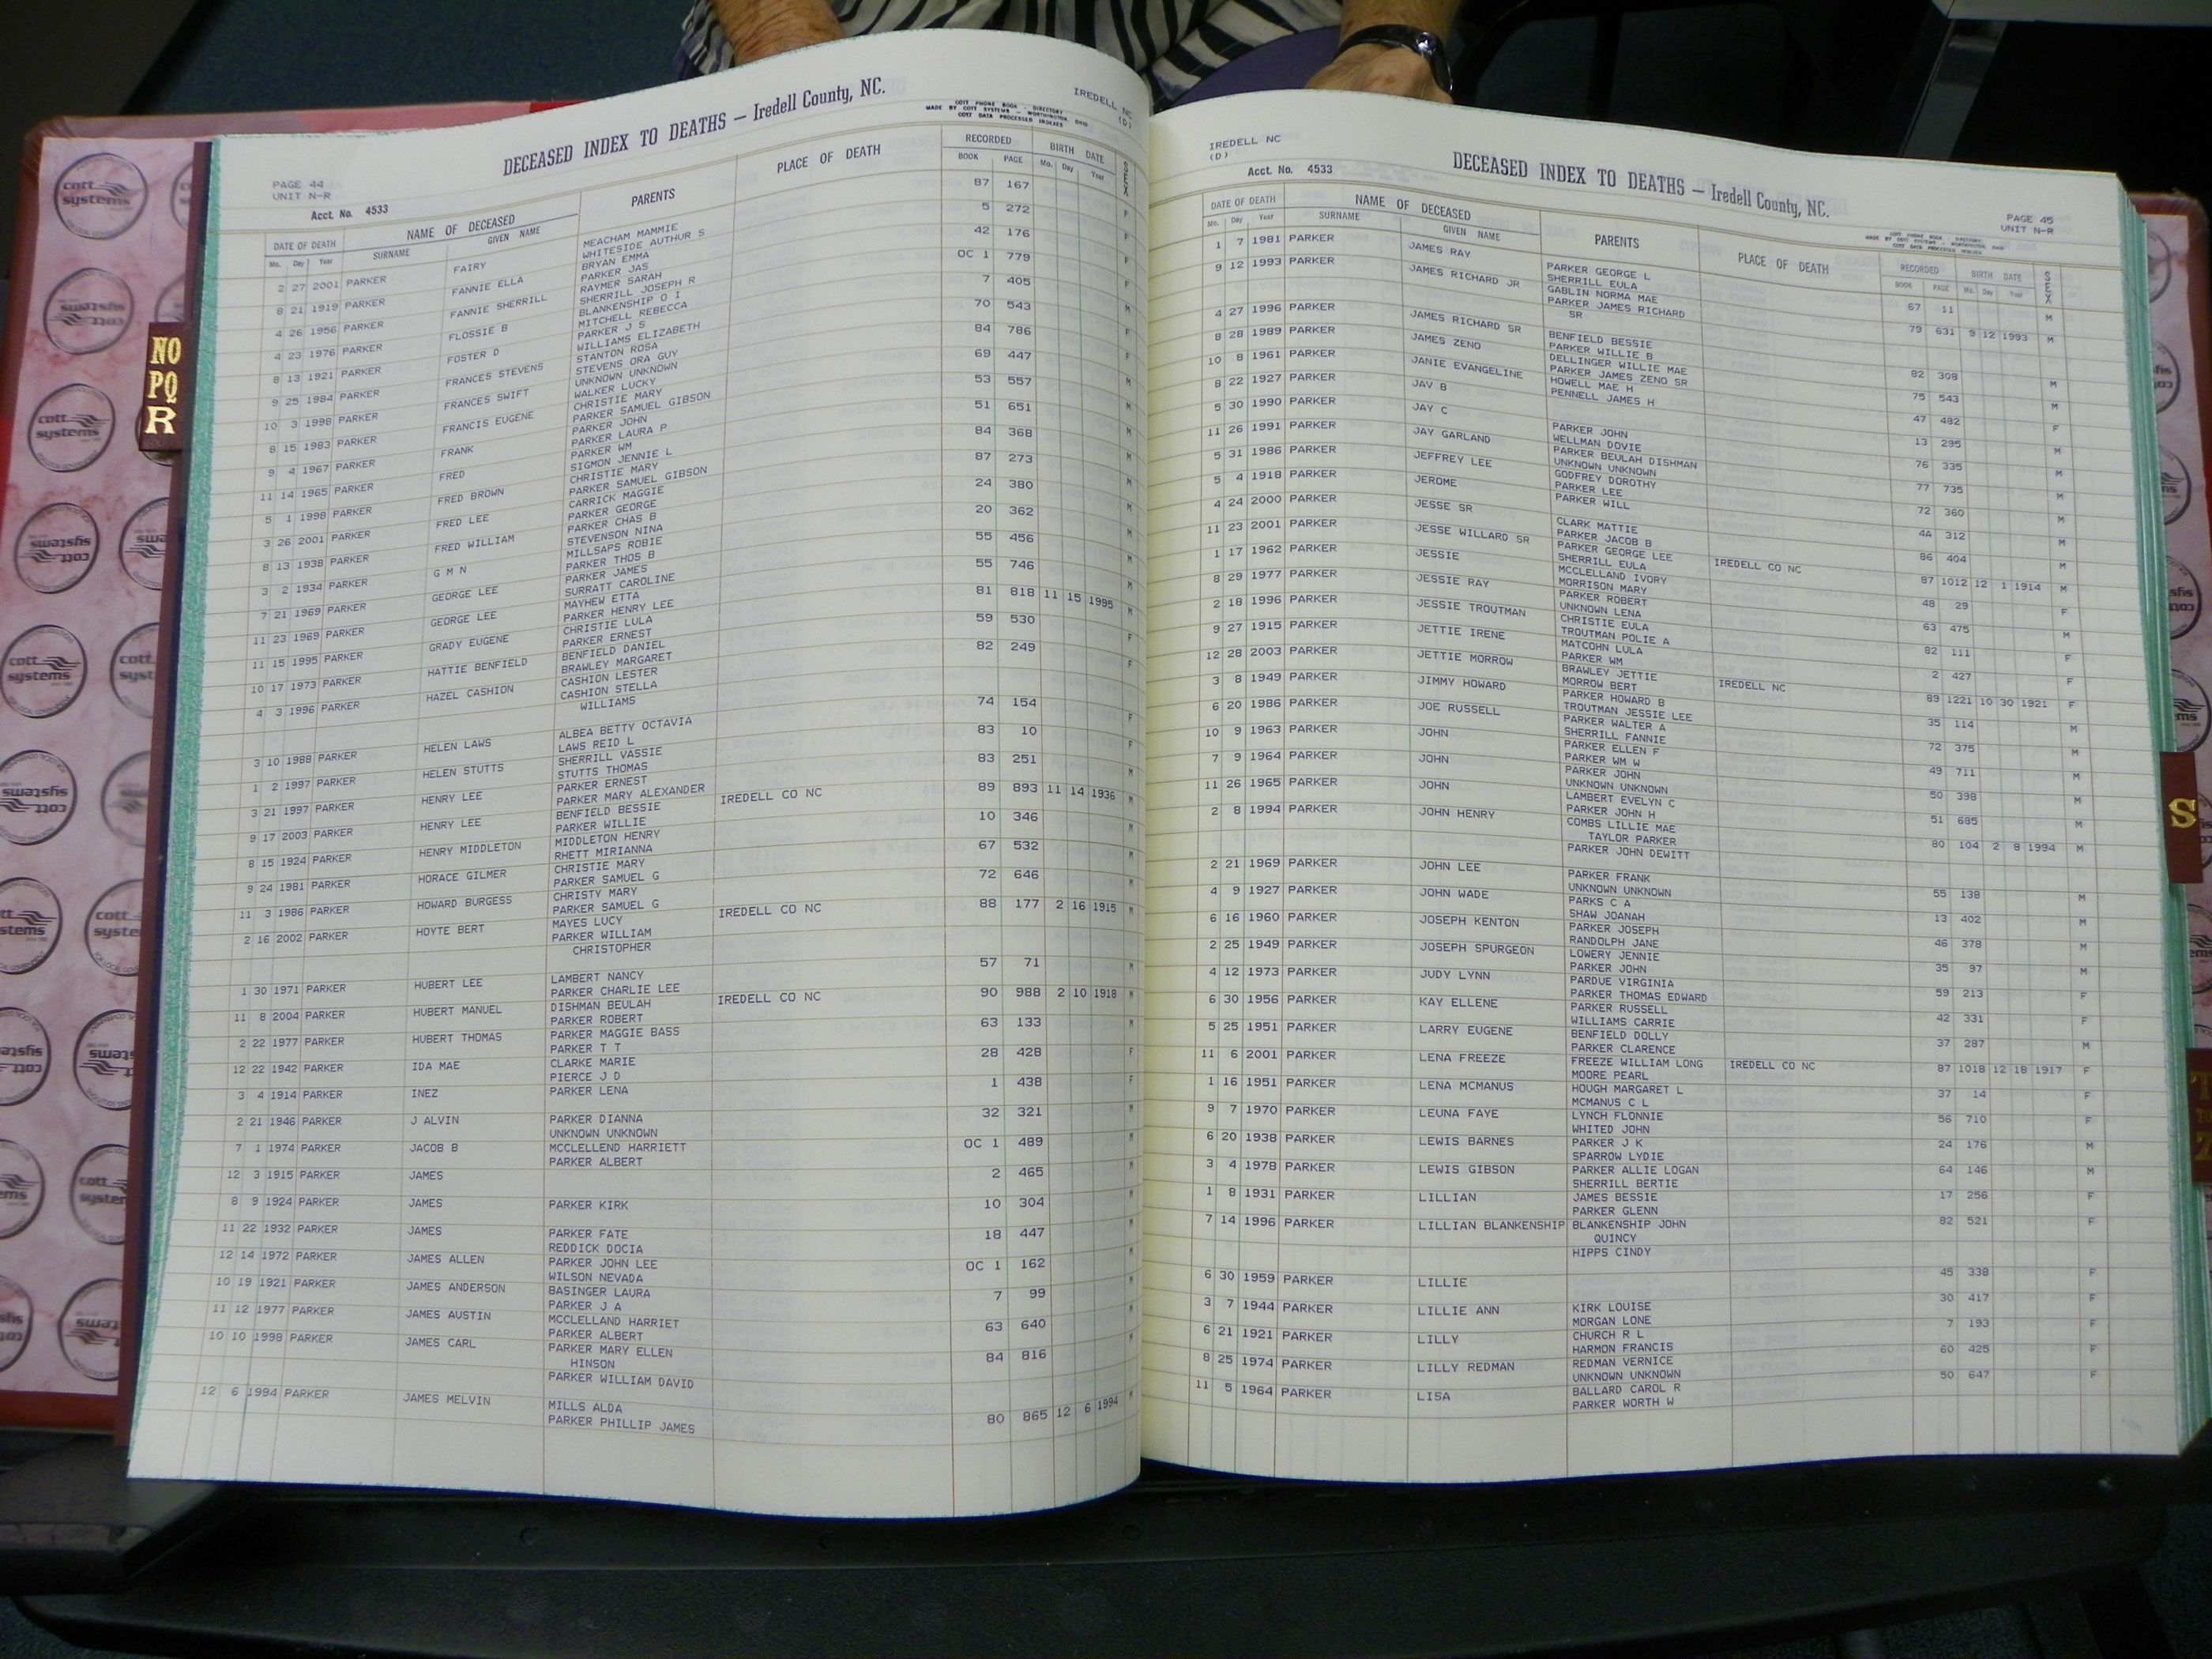 DECEASED INDEX TO DEATHS — Iredell County, NC.
COTT PHONE BOOK - DIRECTORY
MADE BY COTT SYSTEMS - WORTHINGTON, OHIO
COTT DATA PROCESSED INDEXES
IREDELL NC
(D)
PAGE 44
UNIT N-R
Acct. No. 4533
DATE OF DEATH NAME OF DECEASED PARENTS PLACE OF DEATH RECORDED BIRTH DATE SEX
Mo. Day Year SURNAME GIVEN NAME BOOK PAGE Mo. Day Year
2 27 2001 PARKER FAIRY MEACHAM MAMMIE 87 167 F
WHITESIDE AUTHUR S
8 21 1919 PARKER FANNIE ELLA BRYAN EMMA 5 272 F
PARKER JAS
4 26 1956 PARKER FANNIE SHERRILL RAYMER SARAH 42 176 F
SHERRILL JOSEPH R
4 23 1976 PARKER FLOSSIE B BLANKENSHIP O I OC 1 779 F
MITCHELL REBECCA
8 13 1921 PARKER FOSTER D PARKER J S 7 405 M
WILLIAMS ELIZABETH
9 25 1984 PARKER FRANCES STEVENS STANTON ROSA 70 543 F
STEVENS ORA GUY
10 3 1998 PARKER FRANCES SWIFT UNKNOWN UNKNOWN 84 786 F
WALKER LUCKY
8 15 1983 PARKER FRANCIS EUGENE CHRISTIE MARY 69 447 M
PARKER SAMUEL GIBSON
9 4 1967 PARKER FRANK PARKER JOHN 53 557 M
PARKER LAURA P
11 14 1965 PARKER FRED PARKER WM 51 651 M
SIGMON JENNIE L
5 1 1998 PARKER FRED BROWN CHRISTIE MARY 84 368 M
PARKER SAMUEL GIBSON
3 26 2001 PARKER FRED LEE CARRICK MAGGIE 87 273 M
PARKER GEORGE
8 13 1938 PARKER FRED WILLIAM PARKER CHAS B 24 380 M
STEVENSON NINA
3 2 1934 PARKER G M N MILLSAPS ROBIE 20 362 M
PARKER THOS B
7 21 1969 PARKER GEORGE LEE PARKER JAMES 55 456 M
SURRATT CAROLINE
11 23 1969 PARKER GEORGE LEE MAYHEW ETTA 55 746 M
PARKER HENRY LEE
11 15 1995 PARKER GRADY EUGENE CHRISTIE LULA 81 818 11 15 1995 M
PARKER ERNEST
10 17 1973 PARKER HATTIE BENFIELD BENFIELD DANIEL 59 530 F
BRAWLEY MARGARET
4 3 1996 PARKER HAZEL CASHION CASHION LESTER 82 249 F
CASHION STELLA
WILLIAMS
3 10 1988 PARKER HELEN LAWS ALBEA BETTY OCTAVIA 74 154 F
LAWS REID L
1 2 1997 PARKER HELEN STUTTS SHERRILL VASSIE 83 10 F
STUTTS THOMAS
3 21 1997 PARKER HENRY LEE PARKER ERNEST 83 251 M
PARKER MARY ALEXANDER
9 17 2003 PARKER HENRY LEE BENFIELD BESSIE IREDELL CO NC 89 893 11 14 1936 M
PARKER WILLIE
8 15 1924 PARKER HENRY MIDDLETON MIDDLETON HENRY 10 346 M
RHETT MIRIANNA
9 24 1981 PARKER HORACE GILMER CHRISTIE MARY 67 532 M
PARKER SAMUEL G
11 3 1986 PARKER HOWARD BURGESS CHRISTY MARY 72 646 M
PARKER SAMUEL G
2 16 2002 PARKER HOYTE BERT MAYES LUCY IREDELL CO NC 88 177 2 16 1915 M
PARKER WILLIAM
CHRISTOPHER
1 30 1971 PARKER HUBERT LEE LAMBERT NANCY 57 71 M
PARKER CHARLIE LEE
11 8 2004 PARKER HUBERT MANUEL DISHMAN BEULAH IREDELL CO NC 90 988 2 10 1918 M
PARKER ROBERT
2 22 1977 PARKER HUBERT THOMAS PARKER MAGGIE BASS 63 133 M
PARKER T T
12 22 1942 PARKER IDA MAE CLARKE MARIE 28 428 F
PIERCE J D
3 4 1914 PARKER INEZ PARKER LENA 1 438 F
2 21 1946 PARKER J ALVIN PARKER DIANNA 32 321 M
UNKNOWN UNKNOWN
7 1 1974 PARKER JACOB B MCCLELLEND HARRIETT OC 1 489 M
PARKER ALBERT
12 3 1915 PARKER JAMES 2 465 M
8 9 1924 PARKER JAMES PARKER KIRK 10 304 M
11 22 1932 PARKER JAMES PARKER FATE 18 447 M
REDDICK DOCIA
12 14 1972 PARKER JAMES ALLEN PARKER JOHN LEE OC 1 162 M
WILSON NEVADA
10 19 1921 PARKER JAMES ANDERSON BASINGER LAURA 7 99 M
PARKER J A
11 12 1977 PARKER JAMES AUSTIN MCCLELLAND HARRIET 63 640 M
PARKER ALBERT
10 10 1998 PARKER JAMES CARL PARKER MARY ELLEN 84 816 M
HINSON
PARKER WILLIAM DAVID
12 6 1994 PARKER JAMES MELVIN MILLS ALDA 80 865 12 6 1994 M
PARKER PHILLIP JAMES
IREDELL NC
(D)
Acct. No. 4533
DECEASED INDEX TO DEATHS — Iredell County, NC.
PAGE 45
UNIT N-R
DATE OF DEATH NAME OF DECEASED PARENTS PLACE OF DEATH RECORDED BIRTH DATE SEX
Mo. Day Year SURNAME GIVEN NAME BOOK PAGE Mo. Day Year
1 7 1981 PARKER JAMES RAY PARKER GEORGE L 67 11 M
SHERRILL EULA
9 12 1993 PARKER JAMES RICHARD JR GABLIN NORMA MAE 79 631 9 12 1993 M
PARKER JAMES RICHARD
SR
4 27 1996 PARKER JAMES RICHARD SR BENFIELD BESSIE 82 308 M
PARKER WILLIE B
8 28 1989 PARKER JAMES ZENO DELLINGER WILLIE MAE 75 543 M
PARKER JAMES ZENO SR
10 8 1961 PARKER JANIE EVANGELINE HOWELL MAE H 47 482 F
PENNELL JAMES H
8 22 1927 PARKER JAV B PARKER JOHN 13 295 M
WELLMAN DOVIE
5 30 1990 PARKER JAY C PARKER BEULAH DISHMAN 76 335 M
UNKNOWN UNKNOWN
11 26 1991 PARKER JAY GARLAND GODFREY DOROTHY 77 735 M
PARKER LEE
5 31 1986 PARKER JEFFREY LEE PARKER WILL 72 360 M
5 4 1918 PARKER JEROME CLARK MATTIE 4A 312 M
PARKER JACOB B
4 24 2000 PARKER JESSE SR PARKER GEORGE LEE 86 404 M
SHERRILL EULA
11 23 2001 PARKER JESSE WILLARD SR MCCLELLAND IVORY IREDELL CO NC 87 1012 12 1 1914 M
MORRISON MARY
1 17 1962 PARKER JESSIE PARKER ROBERT 48 29 F
UNKNOWN LENA
8 29 1977 PARKER JESSIE RAY CHRISTIE EULA 63 475 M
TROUTMAN POLIE A
2 18 1996 PARKER JESSIE TROUTMAN MATCOHN LULA 82 111 F
PARKER WM
9 27 1915 PARKER JETTIE IRENE BRAWLEY JETTIE 2 427 F
12 28 2003 PARKER JETTIE MORROW MORROW BERT IREDELL NC 89 1221 10 30 1921 F
3 8 1949 PARKER JIMMY HOWARD PARKER HOWARD B 35 114 M
TROUTMAN JESSIE LEE
6 20 1986 PARKER JOE RUSSELL PARKER WALTER A 72 375 M
SHERRILL FANNIE
10 9 1963 PARKER JOHN PARKER ELLEN F 49 711 M
PARKER WM W
7 9 1964 PARKER JOHN PARKER JOHN 50 398 M
UNKNOWN UNKNOWN
11 26 1965 PARKER JOHN LAMBERT EVELYN C 51 685 M
PARKER JOHN H
2 8 1994 PARKER JOHN HENRY COMBS LILLIE MAE 80 104 2 8 1994 M
TAYLOR PARKER
PARKER JOHN DEWITT
2 21 1969 PARKER JOHN LEE PARKER FRANK 55 138 M
UNKNOWN UNKNOWN
4 9 1927 PARKER JOHN WADE PARKS C A 13 402 M
SHAW JOANAH
6 16 1960 PARKER JOSEPH KENTON PARKER JOSEPH 46 378 M
RANDOLPH JANE
2 25 1949 PARKER JOSEPH SPURGEON LOWERY JENNIE 35 97 M
PARKER JOHN
4 12 1973 PARKER JUDY LYNN PARDUE VIRGINIA 59 213 F
PARKER THOMAS EDWARD
6 30 1956 PARKER KAY ELLENE PARKER RUSSELL 42 331 F
WILLIAMS CARRIE
5 25 1951 PARKER LARRY EUGENE BENFIELD DOLLY 37 287 M
PARKER CLARENCE
11 6 2001 PARKER LENA FREEZE FREEZE WILLIAM LONG IREDELL CO NC 87 1018 12 18 1917 F
MOORE PEARL
1 16 1951 PARKER LENA MCMANUS HOUGH MARGARET L 37 14 F
MCMANUS C L
9 7 1970 PARKER LEUNA FAYE LYNCH FLONNIE 56 710 F
WHITED JOHN
6 20 1938 PARKER LEWIS BARNES PARKER J K 24 176 M
SPARROW LYDIE
3 4 1978 PARKER LEWIS GIBSON PARKER ALLIE LOGAN 64 146 M
SHERRILL BERTIE
1 8 1931 PARKER LILLIAN JAMES BESSIE 17 256 F
PARKER GLENN
7 14 1996 PARKER LILLIAN BLANKENSHIP BLANKENSHIP JOHN 82 521 F
QUINCY
HIPPS CINDY
6 30 1959 PARKER LILLIE 45 338 F
3 7 1944 PARKER LILLIE ANN KIRK LOUISE 30 417 F
MORGAN LONE
6 21 1921 PARKER LILLY CHURCH R L 7 193 F
HARMON FRANCIS
8 25 1974 PARKER LILLY REDMAN REDMAN VERNICE 60 425 F
UNKNOWN UNKNOWN
11 5 1964 PARKER LISA BALLARD CAROL R 50 647 F
PARKER WORTH W
NO
PQ
R
S
cott systems